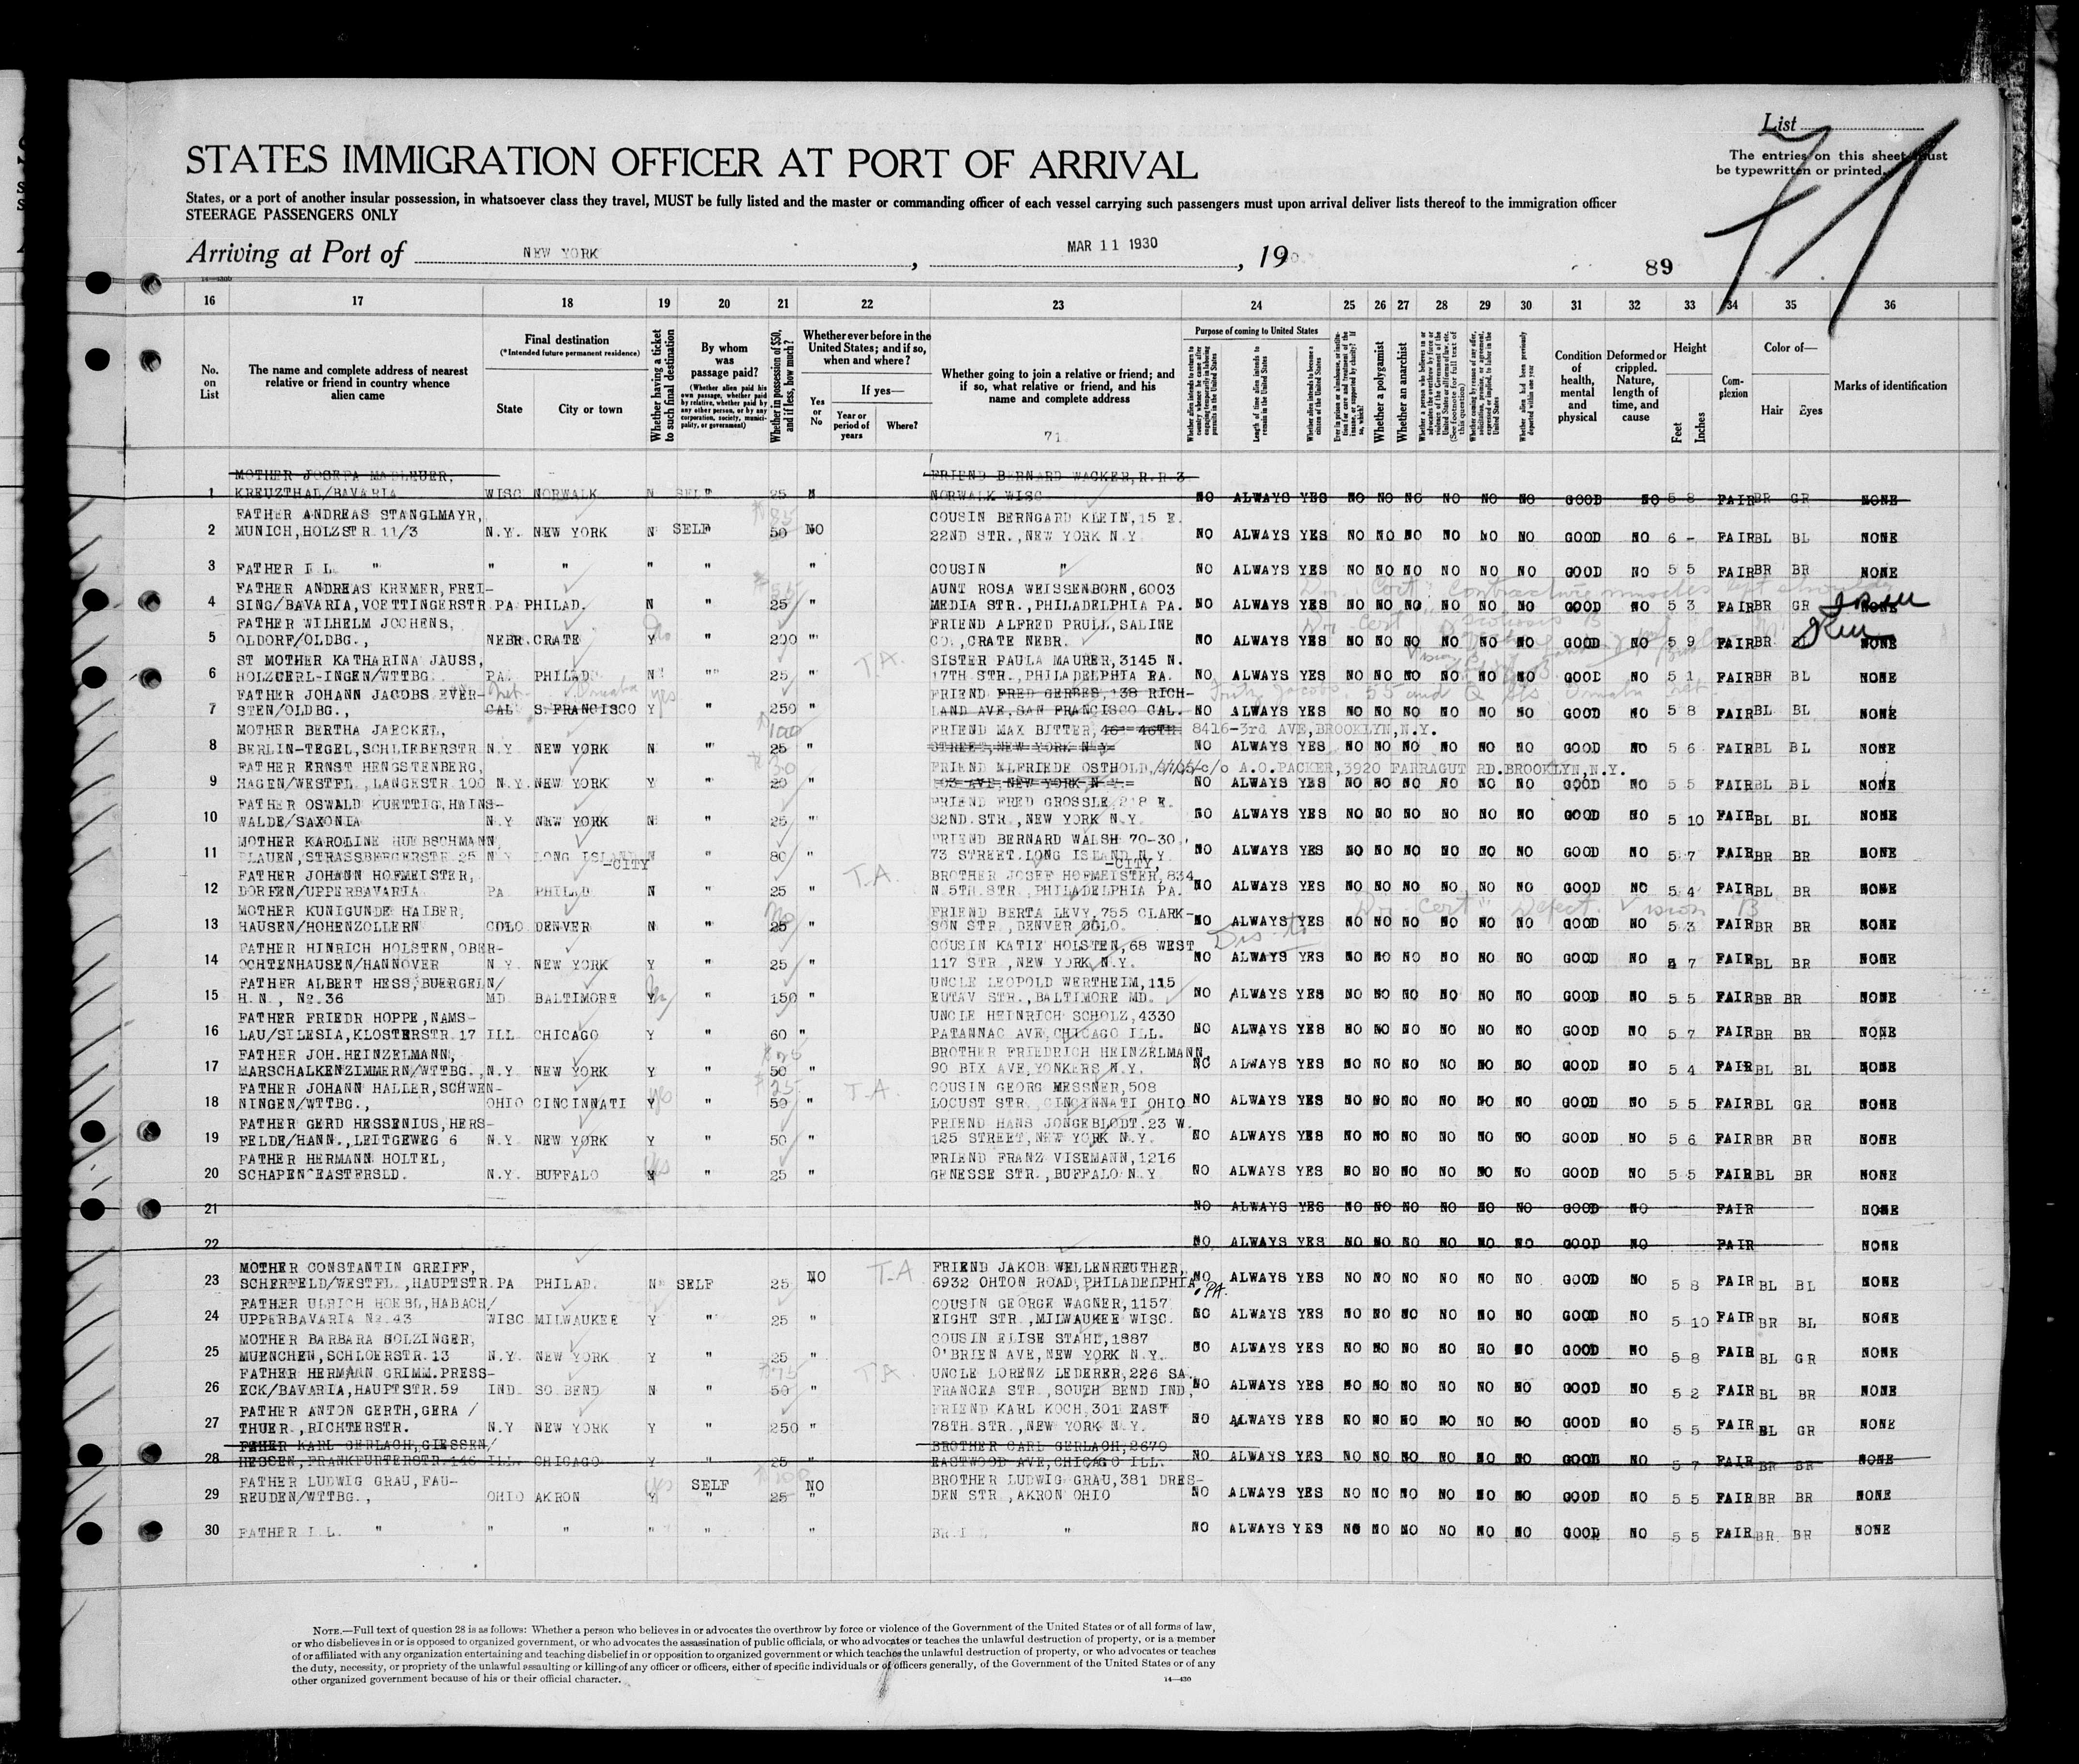 List
The entries on this sheet must
be typewritten or printed.
STATES IMMIGRATION OFFICER AT PORT OF ARRIVAL
States, or a port of another insular possession, in whatsoever class they travel, MUST be fully listed and the master or commanding officer of each vessel carrying such passengers must upon arrival deliver lists thereof to the immigration officer
STEERAGE PASSENGERS ONLY
Arriving at Port of NEW YORK, MAR 11 1930, 19
89
16 17 18 19 20 21 22 23 24 25 26 27 28 29 30 31 32 33 34 35 36
No. on List
The name and complete address of nearest relative or friend in country whence alien came
Final destination
(*Intended future permanent residence)
State
City or town
Whether having a ticket to such final destination
By whom was passage paid?
(Whether alien paid his own passage, whether paid by relative, whether paid by any other person, or by any corporation, society, municipality, or government)
Whether in possession of $50, and if less, how much?
Whether ever before in the United States; and if so, when and where?
Yes or No
If yes—
Year or period of years
Where?
Whether going to join a relative or friend; and if so, what relative or friend, and his name and complete address
71
Purpose of coming to United States
Length of time alien intends to remain in the United States
Whether alien intends to become a citizen of the United States
Whether a polygamist
Whether an anarchist
Condition of health, mental and physical
Deformed or crippled. Nature, length of time, and cause
Height
Feet
Inches
Complexion
Color of—
Hair
Eyes
Marks of identification
KREUZTHAL/BAVARIA FRIEND BERNARD WACKER, R.R 3
1 WISC NORWALK N SELF 25 NORWALK WISC NO ALWAYS YES NO NO NO NO NO NO GOOD NO 5 8 FAIR BR GR NONE
FATHER ANDREAS STANGLMAYR, COUSIN BERNGARD KLEIN, 15 E.
2 MUNICH, HOLZSTR 11/3 N.Y. NEW YORK N SELF 50 NO 22ND STR., NEW YORK N.Y NO ALWAYS YES NO NO NO NO NO NO GOOD NO 6 - FAIR BL BL NONE
3 FATHER I.L. " " " " " " COUSIN " NO ALWAYS YES NO NO NO NO NO NO GOOD NO 5 5 FAIR BR BR NONE
FATHER ANDREAS KREMER, FREI- AUNT ROSA WEISSENBORN, 6003
4 SING/BAVARIA, VOETTINGERSTR PA PHILAD. N " 25 " MEDIA STR., PHILADELPHIA PA. NO ALWAYS YES NO NO NO NO NO NO GOOD NO 5 3 FAIR BR GR NONE
FATHER WILHELM JOCHENS, FRIEND ALFRED PRULL, SALINE
5 OLDORF/OLDBG., NEBR. CRATE Y " 200 " CO., CRATE NEBR. NO ALWAYS YES NO NO NO NO NO NO GOOD NO 5 9 FAIR BR NONE
ST MOTHER KATHARINA JAUSS, T.A. SISTER PAULA MAURER, 3145 N.
6 HOLZGERL-INGEN/WTTBG PA. PHILAD N " 25 " 17TH STR., PHILADELPHIA PA. NO ALWAYS YES NO NO NO NO NO NO GOOD NO 5 1 FAIR BR BL NONE
FATHER JOHANN JACOBS EVER- Omaha yes FRIEND FRED GERBES, 138 RICH- Jacobs, 55 and Q Sts Omaha
7 STEN/OLDBG., CAL S.FRANCISCO Y " 250 " LAND AVE, SAN FRANCISCO CAL. NO ALWAYS YES NO NO NO NO NO NO GOOD NO 5 8 FAIR BL BL NONE
MOTHER BERTHA JAECKEL, $100 FRIEND MAX BITTER, 46TH 8416-3rd AVE, BROOKLYN, N.Y.
8 BERLIN-TEGEL, SCHLIEBERSTR N.Y NEW YORK N " 25 " STREET, NEW YORK N.Y. NO ALWAYS YES NO NO NO NO NO NO GOOD NO 5 6 FAIR BL BL NONE
FATHER ERNST HENGSTENBERG, FRIEND ELFRIEDE OSTHOLD, c/o A.O.PACKER, 3920 FARRAGUT RD. BROOKLYN, N.Y.
9 HAGEN/WESTFL., LANGESTR.100 N.Y. NEW YORK Y " 20 " AVE, NEW YORK N.Y. NO ALWAYS YES NO NO NO NO NO NO GOOD NO 5 5 FAIR BL BL NONE
FATHER OSWALD KUETTIG, HAINS- FRIEND FRED GROSSLE, 218 E.
10 WALDE/SAXONIA N.Y NEW YORK N " 25 " 82ND STR., NEW YORK N.Y. NO ALWAYS YES NO NO NO NO NO NO GOOD NO 5 10 FAIR BL BL NONE
MOTHER KAROLINE HUEBSCHMANN, FRIEND BERNARD WALSH 70-30,
11 PLAUEN, STRASSBERGERSTR 25 N.Y LONG ISLAND-CITY " 80 " 73 STREET. LONG ISLAND-CITY N.Y NO ALWAYS YES NO NO NO NO NO NO GOOD NO 5 7 FAIR BR BR NONE
FATHER JOHANN HOFMEISTER, T.A. BROTHER JOSEF HOFMEISTER, 834
12 DORFEN/UPPERBAVARIA PA PHILAD N " 25 " N.5TH STR., PHILADELPHIA PA. NO ALWAYS YES NO NO NO NO NO NO GOOD NO 5 4 FAIR BL BR NONE
MOTHER KUNIGUNDE HAIBER, FRIEND BERTA LEVY, 755 CLARK- Dr. Cert" Defect. Vision B
13 HAUSEN/HOHENZOLLERN COLO DENVER N " 25 " SON STR., DENVER COLO. NO ALWAYS YES NO NO NO NO NO NO GOOD NO 5 3 FAIR BR BR NONE
FATHER HINRICH HOLSTEN, OBER- COUSIN KATIE HOLSTEN, 68 WEST
14 OCHTENHAUSEN/HANNOVER N.Y. NEW YORK Y " 25 " 117 STR., NEW YORK N.Y. NO ALWAYS YES NO NO NO NO NO NO GOOD NO 5 7 FAIR BL BR NONE
FATHER ALBERT HESS, BUERGELN/ UNCLE LEOPOLD WERTHEIM, 115
15 H.N., No.36 MD. BALTIMORE Y " 150 " EUTAV STR., BALTIMORE MD. NO ALWAYS YES NO NO NO NO NO NO GOOD NO 5 5 FAIR BR BR NONE
FATHER FRIEDR HOPPE, NAMS- UNCLE HEINRICH SCHOLZ, 4330
16 LAU/SILESIA, KLOSTERSTR.17 ILL CHICAGO Y " 60 " PATANNAC AVE, CHICAGO ILL. NO ALWAYS YES NO NO NO NO NO NO GOOD NO 5 7 FAIR BR BR NONE
FATHER JOH.HEINZELMANN, BROTHER FRIEDRICH HEINZELMANN,
17 MARSCHALKENZIMMERN/WTTBG., N.Y NEW YORK Y " 50 " 90 BIX AVE, YONKERS N.Y. NO ALWAYS YES NO NO NO NO NO NO GOOD NO 5 4 FAIR BL BL NONE
FATHER JOHANN HALLER, SCHWEN- yes T.A COUSIN GEORG MESSNER, 508
18 NINGEN/WTTBG., OHIO CINCINNATI Y " 50 " LOCUST STR. CINCINNATI OHIO NO ALWAYS YES NO NO NO NO NO NO GOOD NO 5 5 FAIR BL GR NONE
FATHER GERD HESSENIUS, HERS- FRIEND HANS JONGEBLODT. 23 W.
19 FELDE/HANN., LEITGEWEG 6 N.Y. NEW YORK Y " 50 " 125 STREET, NEW YORK N.Y. NO ALWAYS YES NO NO NO NO NO NO GOOD NO 5 6 FAIR BR BR NONE
FATHER HERMANN HOLTEL, yes FRIEND FRANZ VISEMANN, 1216
20 SCHAPEN EASTERSLD. N.Y. BUFFALO " 25 " GENESSE STR., BUFFALO N.Y NO ALWAYS YES NO NO NO NO NO NO GOOD NO 5 5 FAIR BL BR NONE
21 NO ALWAYS YES NO NO NO NO NO NO GOOD NO FAIR NONE
22 NO ALWAYS YES NO NO NO NO NO NO GOOD NO FAIR NONE
MOTHER CONSTANTIN GREIFF, T.A FRIEND JAKOB WELLENREUTHER,
23 SCHERFELD/WESTFL., HAUPTSTR. PA PHILAD. N SELF 25 NO 6932 OHTON ROAD, PHILADELPHIA, PA. NO ALWAYS YES NO NO NO NO NO NO GOOD NO 5 8 FAIR BL BL NONE
FATHER ULRICH HOEBL, HABACH/ COUSIN GEORGE WAGNER, 1157
24 UPPERBAVARIA No.43 WISC MILWAUKEE Y " 25 " EIGHT STR., MILWAUKEE WISC. NO ALWAYS YES NO NO NO NO NO NO GOOD NO 5 10 FAIR BR BL NONE
MOTHER BARBARA HOLZINGER, COUSIN ELISE STAHL, 1887
25 MUENCHEN, SCHLOERSTR.13 N.Y. NEW YORK Y " 25 " O'BRIEN AVE, NEW YORK N.Y. NO ALWAYS YES NO NO NO NO NO NO GOOD NO 5 8 FAIR BL GR NONE
FATHER HERMANN GRIMM. PRESS- T.A UNCLE LORENZ LEDERER, 226 SA.
26 ECK/BAVARIA, HAUPTSTR.59 IND. SO BEND N " 50 " FRANCEA STR., SOUTH BEND IND, NO ALWAYS YES NO NO NO NO NO NO GOOD NO 5 2 FAIR BL BR NONE
FATHER ANTON GERTH, GERA / FRIEND KARL KOCH, 301 EAST
27 THUER, RICHTERSTR. N.Y NEW YORK Y " 250 " 78TH STR., NEW YORK N.Y. NO ALWAYS YES NO NO NO NO NO NO GOOD NO 5 5 FAIR BL GR NONE
FATHER KARL GERLACH, GIESSEN/ BROTHER CARL GERLACH, 2670
28 HESSEN, FRANKFURTERSTR.146 ILL. CHICAGO Y " 25 " EASTWOOD AVE, CHICAGO ILL. NO ALWAYS YES NO NO NO NO NO NO GOOD NO 5 7 FAIR BR BR NONE
FATHER LUDWIG GRAU, FAU- yes SELF NO BROTHER LUDWIG GRAU, 381 DRES-
29 REUDEN/WTTBG., OHIO AKRON Y " 25 " DEN STR., AKRON OHIO NO ALWAYS YES NO NO NO NO NO NO GOOD NO 5 5 FAIR BR BR NONE
30 FATHER I.L. " " " " " " BR.I.L. " NO ALWAYS YES NO NO NO NO NO NO GOOD NO 5 5 FAIR BR. BR NONE
NOTE.—Full text of question 28 is as follows: Whether a person who believes in or advocates the overthrow by force or violence of the Government of the United States or of all forms of law,
or who disbelieves in or is opposed to organized government, or who advocates the assassination of public officials, or who advocates or teaches the unlawful destruction of property, or is a member
of or affiliated with any organization entertaining and teaching disbelief in or opposition to organized government or which teaches the unlawful destruction of property, or who advocates or teaches
the duty, necessity, or propriety of the unlawful assaulting or killing of any officer or officers, either of specific individuals or of officers generally, of the Government of the United States or of any
other organized government because of his or their official character.
14—430